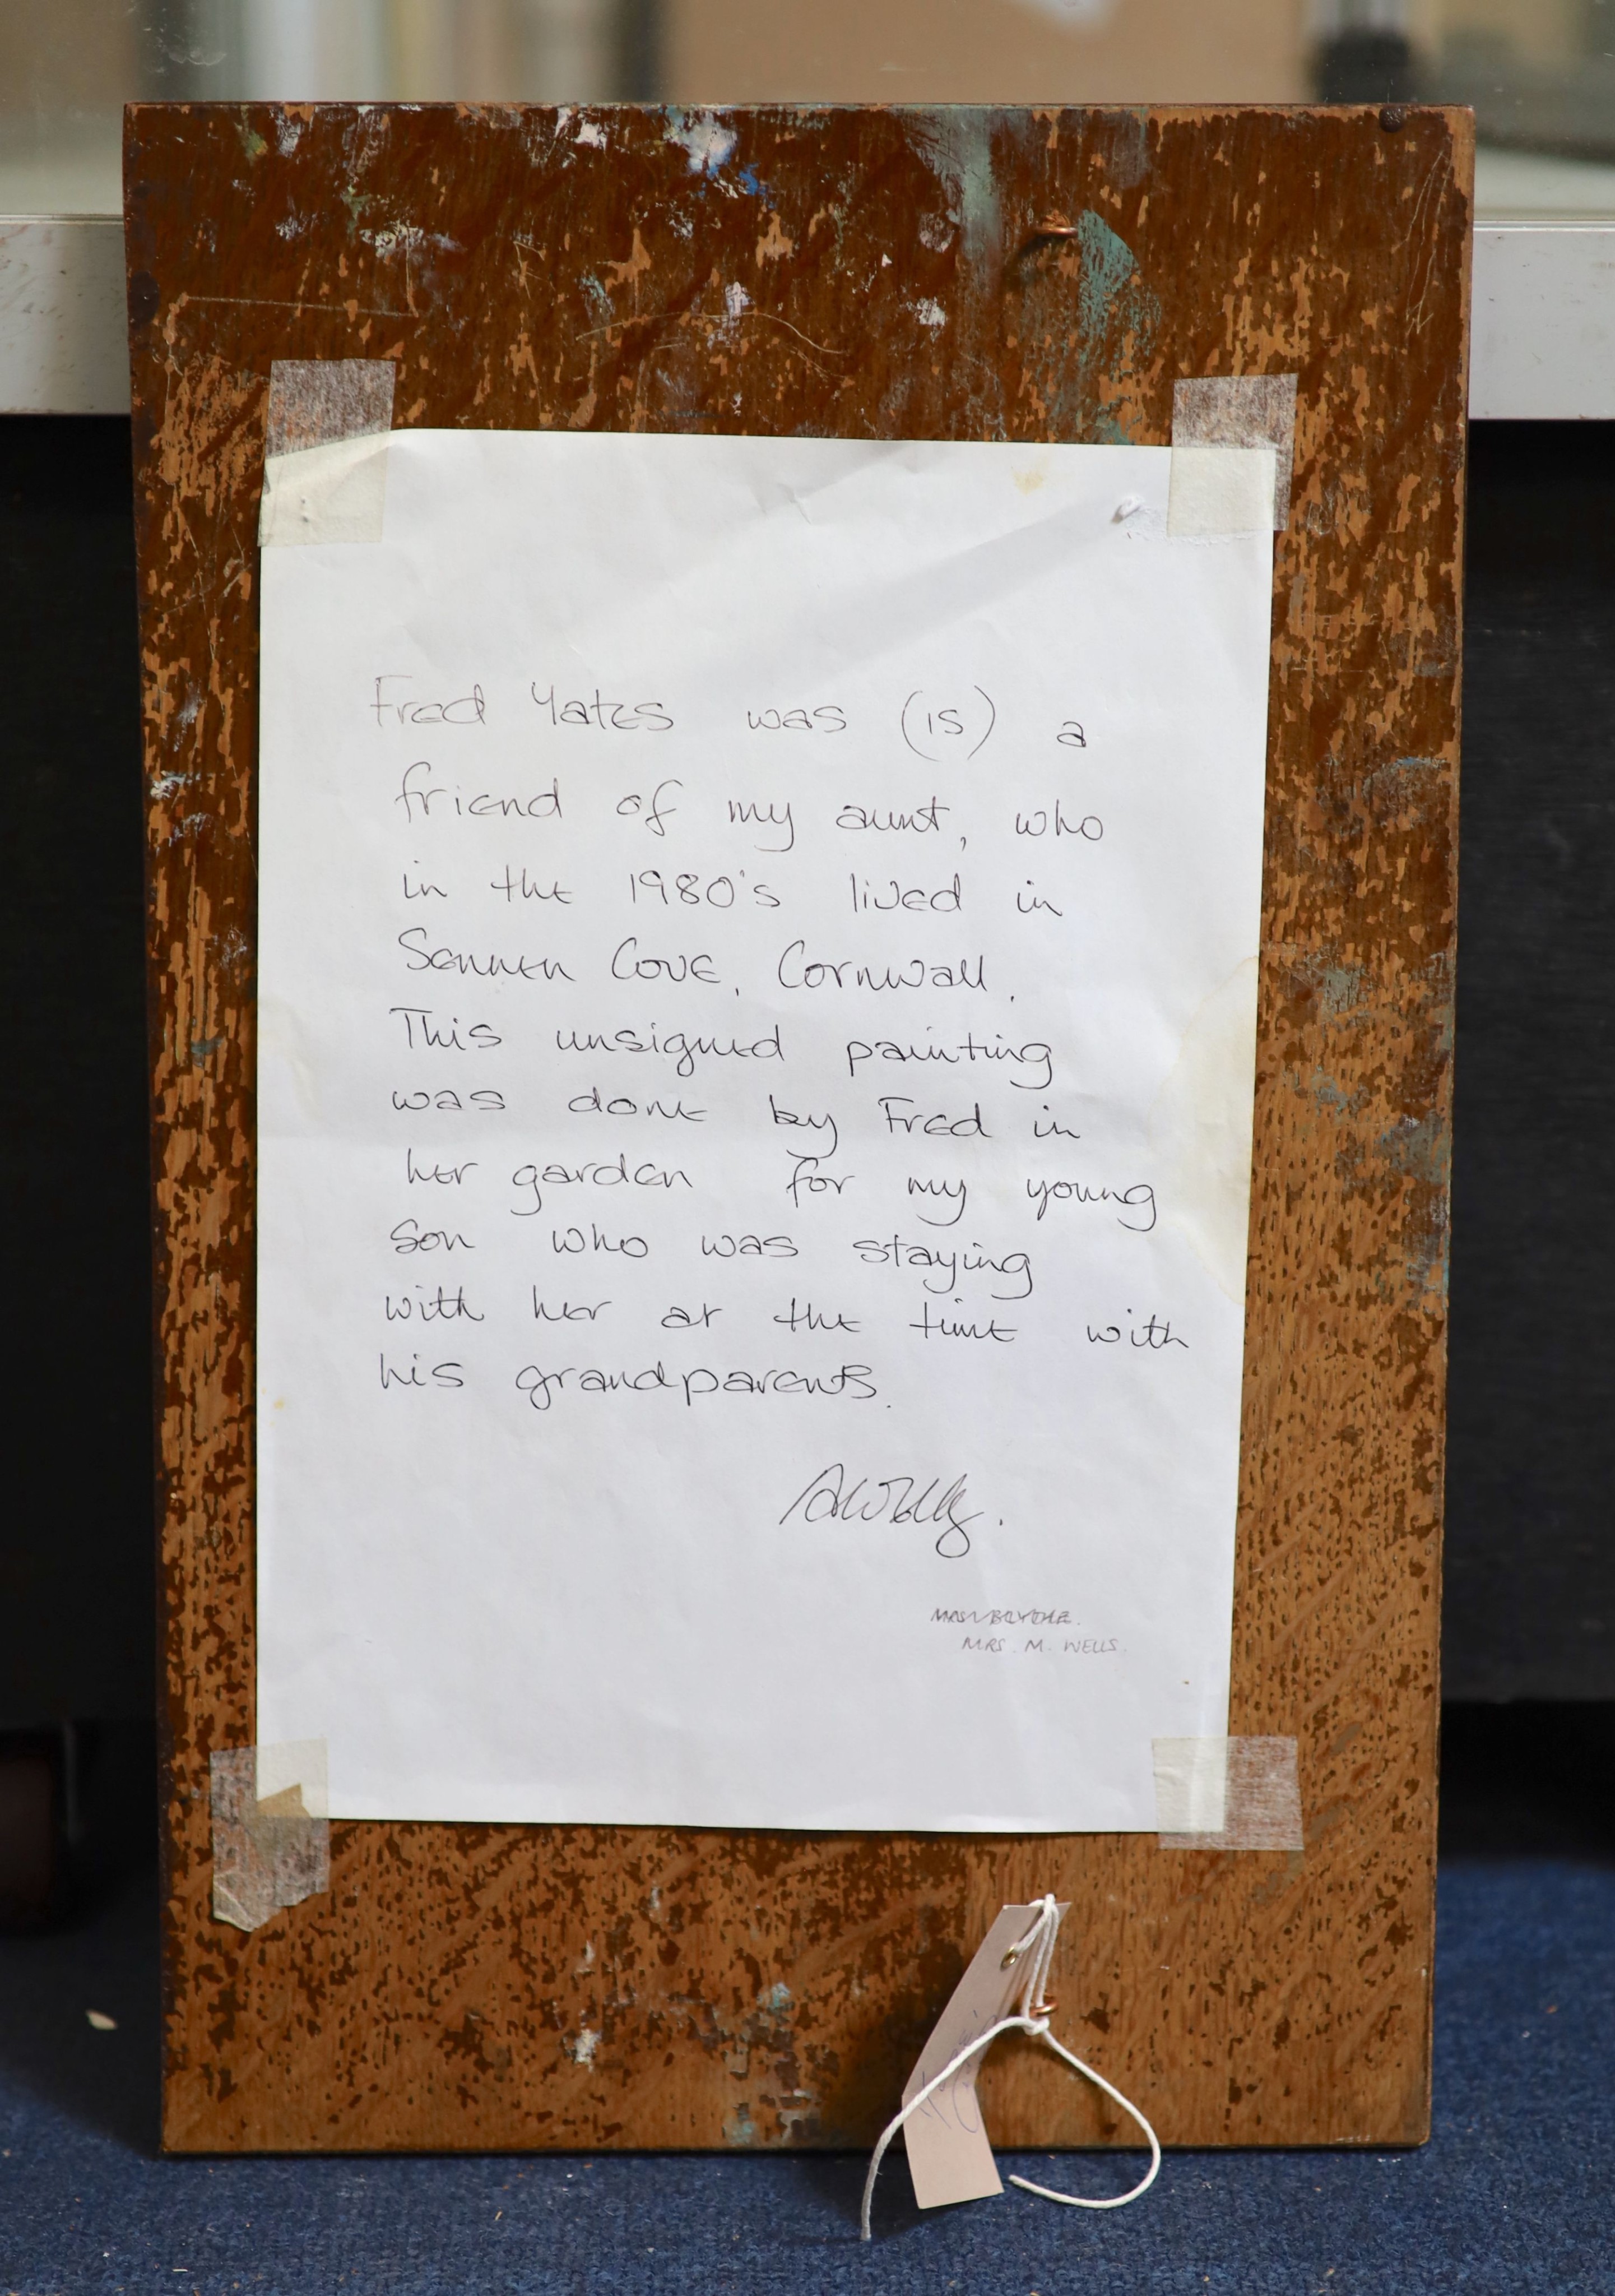 Fred Yates was (is) a
friend of my aunt, who
in the 1980's lived in
Sennen Cove, Cornwall.
This unsigned painting
was done by Fred in
her garden for my young
son who was staying
with her at the time with
his grandparents.
MRS. M. WELLS.